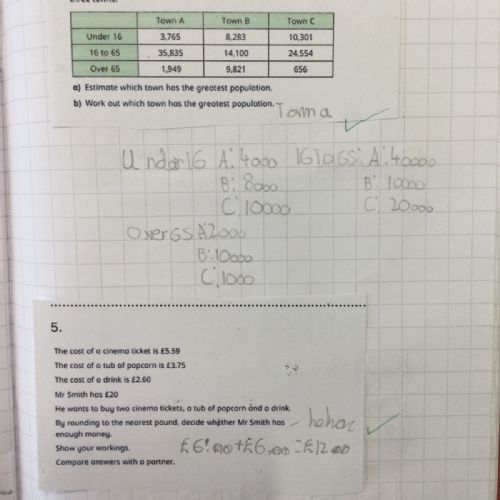 Town A Town B Town C
Under 16 3,765 8,283 10,301
16 to 65 35,835 14,100 24,554
Over 65 1,949 9,821 656
a) Estimate which town has the greatest population.
b) Work out which town has the greatest population. Towna
Under16 A: 4000 16To65: A: 40000
B: 8000 B: 10000
C: 10000 C: 20000
Over65 A: 2000
B: 10000
C: 1000
5.
The cost of a cinema ticket is £5.59
The cost of a tub of popcorn is £3.75
The cost of a drink is £2.60
Mr Smith has £20
He wants to buy two cinema tickets, a tub of popcorn and a drink.
By rounding to the nearest pound, decide whether Mr Smith has
enough money.
Show your workings. £6.00+£6.00=£12.00
Compare answers with a partner.